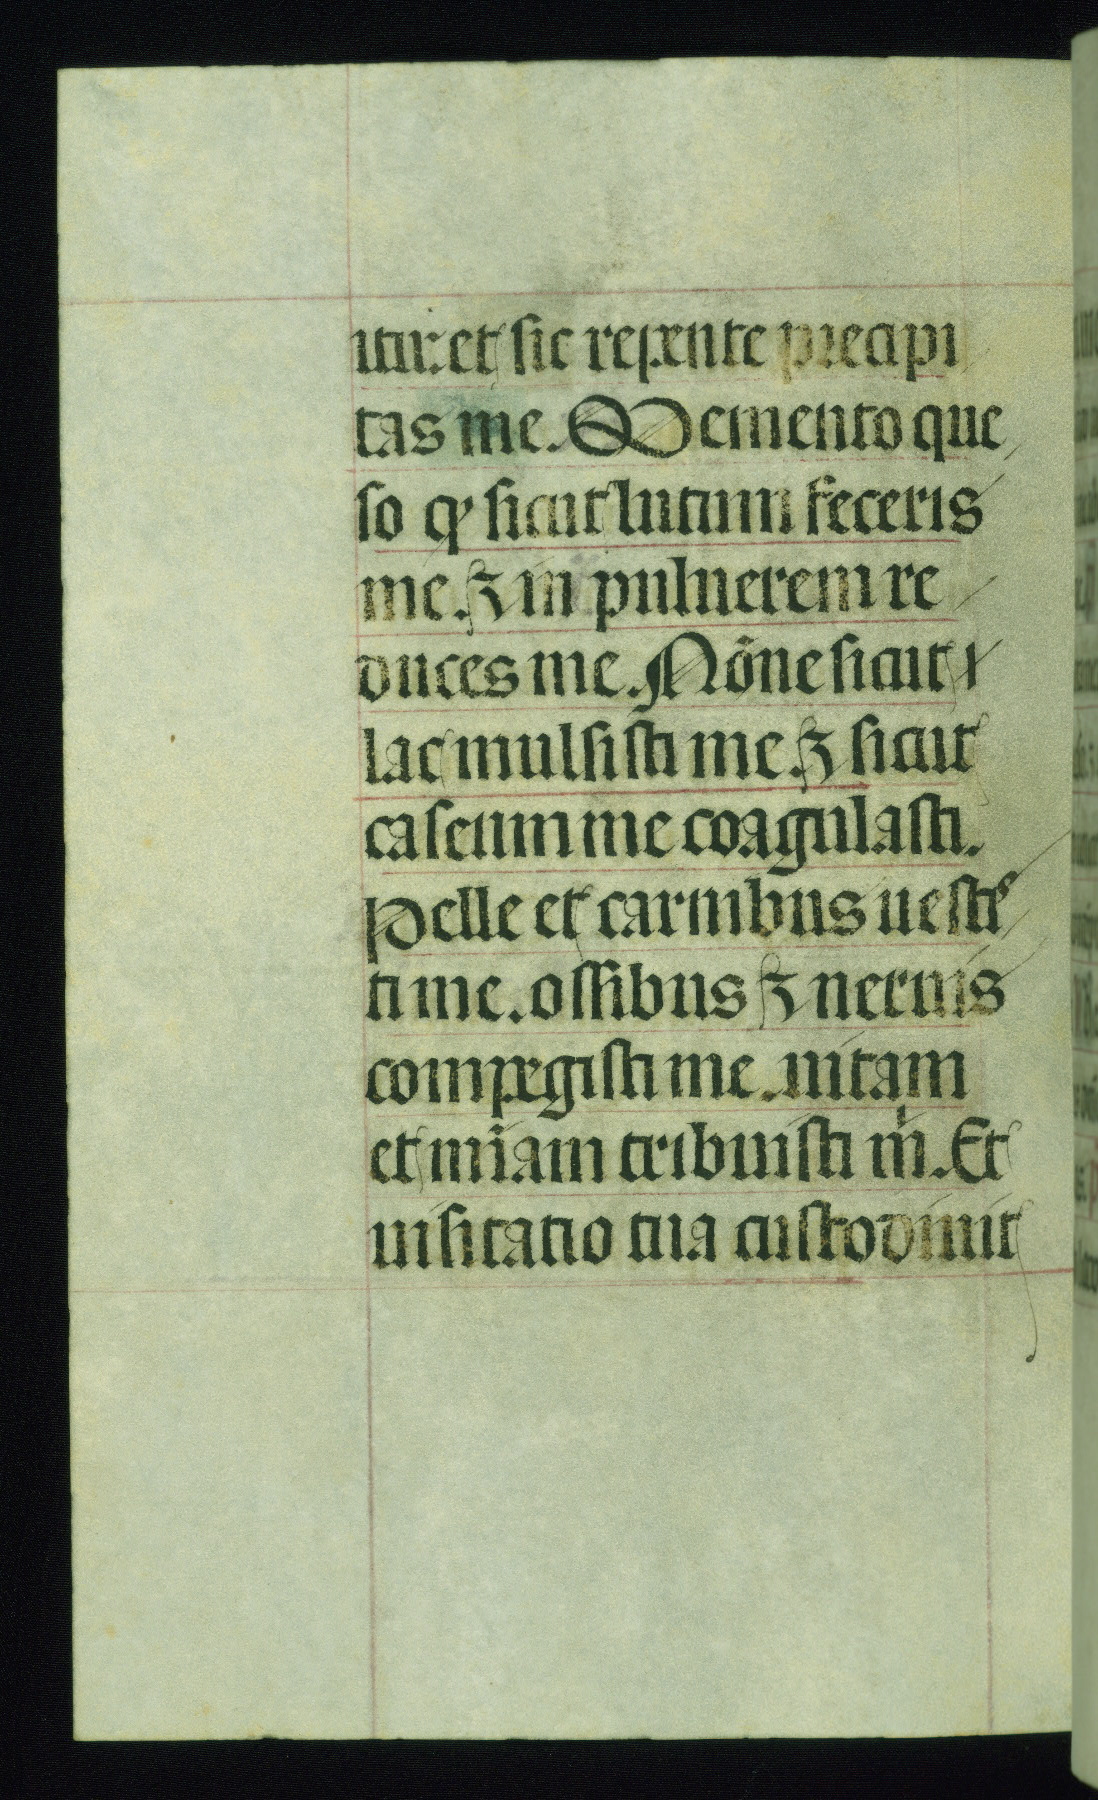 itu: et sic repente precipi
tas me. Memento que
so qꝫ sicut lutum feceris
me. ⁊ in puluerem re
duces me. Nõne sicut
lac mulsisti me ⁊ sicut
caseum me coagulasti.
Pelle et carnibus uesti
ti me. ossibus ⁊ neruis
compegisti me. uitam
et mĩam tribuisti m̃. Et
uisitatio tua custodiuit